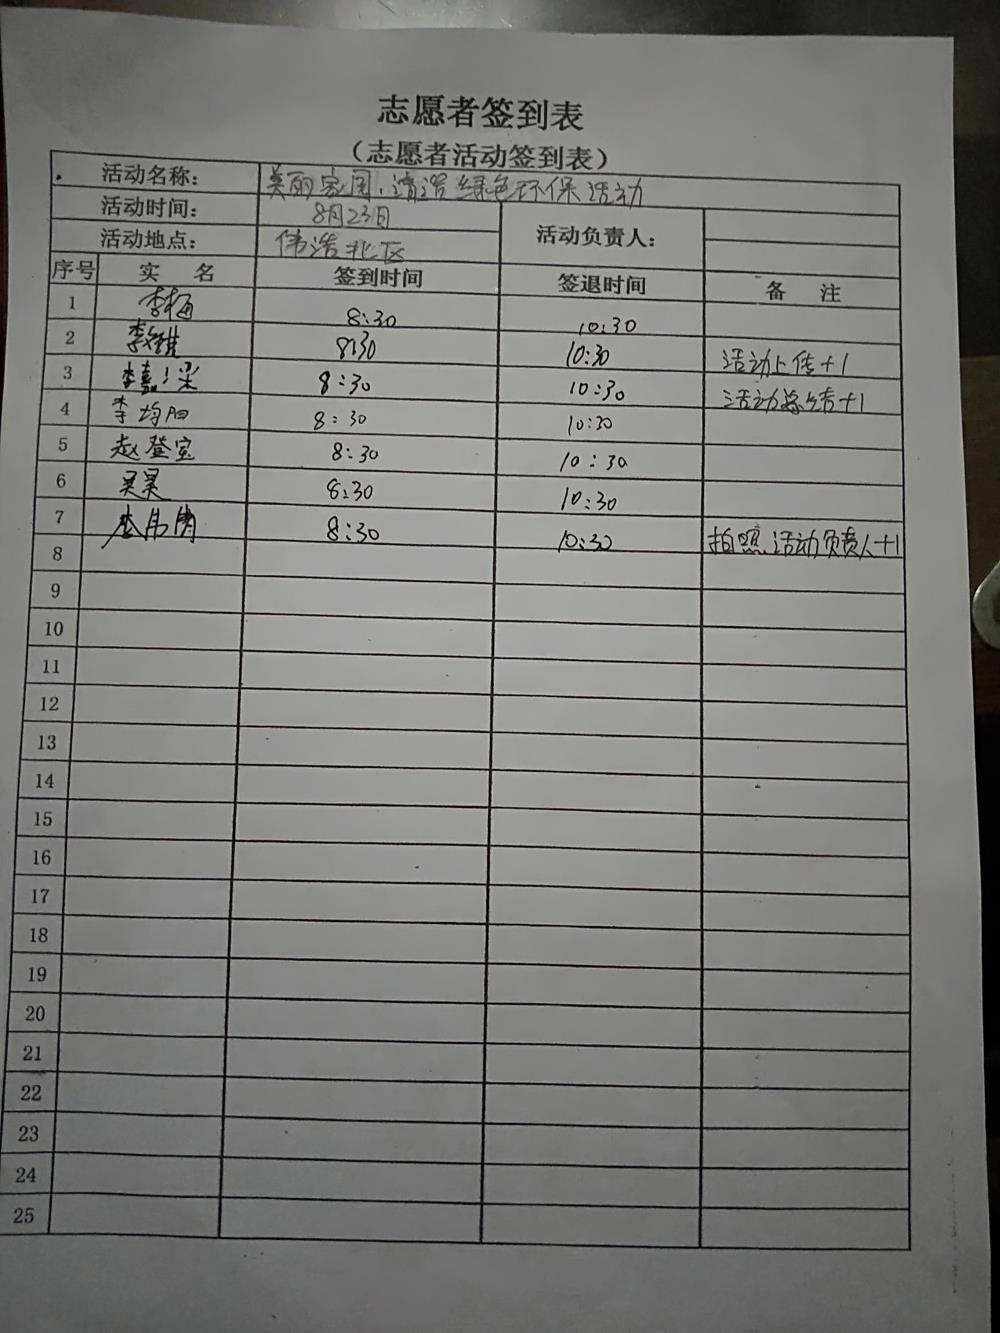 志愿者签到表
（志愿者活动签到表）
活动名称： 美丽家园、清洁绿色环保活动
活动时间： 8月23日 活动负责人：
活动地点： 伟浩北区
序号 实 名 签到时间 签退时间 备 注
1 李梅 8:30 10:30
2 8:30 10:30 活动上传+1
3 李嘉 8:30 10:30 活动总结+1
4 李均阳 8:30 10:30
5 赵登宝 8:30 10:30
6 吴昊 8:30 10:30
7 李伟倩 8:30 10:30 拍照,活动负责人+1
8
9
10
11
12
13
14
15
16
17
18
19
20
21
22
23
24
25